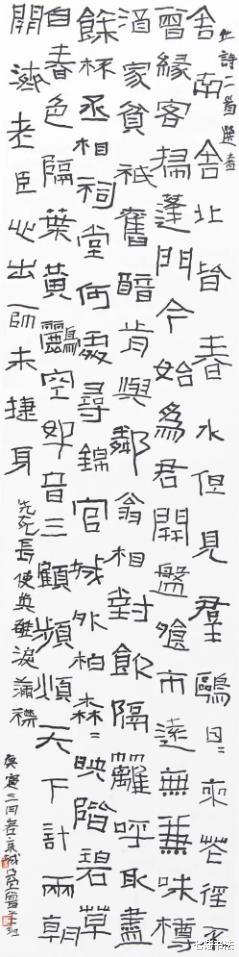 杜詩二首
舍南舍北皆春水但見群鷗日〻來花徑不
曾緣客掃蓬門今始為君開盤飧市遠無兼味樽
酒家貧祗舊醅肯與鄰翁相對飲隔籬呼取盡
餘杯丞相祠堂何處尋錦官城外柏森〻映階碧草
自春色隔葉黃鸝空好音三顧頻煩天下計兩朝
開濟老臣心出師未捷身
先死長使英雄淚滿襟